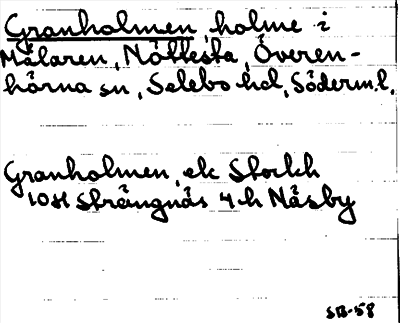 Granholmen, holme i
Mälaren, Nöttesta, Överen-
hörna sn, Selebo hd, Söderm.l.
Granholmen, ek Stockh
10H Strängnäs 4h Näsby
SB-58